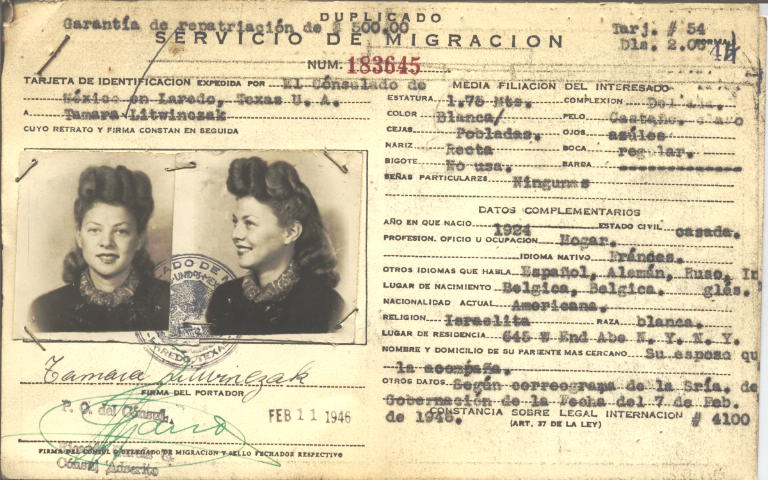 DUPLICADO
Garantía de repatriación de $ 500.00
Tarj. # 54
SERVICIO DE MIGRACION
Dls. 2.00
FORMA
NUM. 183645
TARJETA DE IDENTIFICACION EXPEDIDA POR El Cónsulado de
México en Laredo, Texas U. A.
A Tamara Litwinczak
CUYO RETRATO Y FIRMA CONSTAN EN SEGUIDA
Tamara Litwinczak
FIRMA DEL PORTADOR
P. O. del Cónsul.
FEB 11 1946
FIRMA DEL CONSUL O DELEGADO DE MIGRACION Y SELLO FECHADOR RESPECTIVO
Cónsul Adscrito
MEDIA FILIACION DEL INTERESADO
ESTATURA 1.75 Mts. COMPLEXION
COLOR Blanca/ PELO Castaño.
CEJAS Pobladas. OJOS azúles
NARIZ Recta BOCA regular.
BIGOTE No usa. BARBA
SEÑAS PARTICULARES Ningunas
DATOS COMPLEMENTARIOS
AÑO EN QUE NACIO 1924 ESTADO CIVIL casada.
PROFESION, OFICIO U OCUPACION Hogar.
IDIOMA NATIVO Fráncas.
OTROS IDIOMAS QUE HABLA Español, Alemán, Ruso, In
LUGAR DE NACIMIENTO Belgica, Belgica. glés.
NACIONALIDAD ACTUAL Americana.
RELIGION Israelita RAZA blanca.
LUGAR DE RESIDENCIA 645 W End Abe N. Y. N. Y.
NOMBRE Y DOMICILIO DE SU PARIENTE MAS CERCANO Su esposo qu
la acompaña.
OTROS DATOS Según correograma de la Sría. de
Gobernación de la Fecha del 7 de Feb.
de 1946.
CONSTANCIA SOBRE LEGAL INTERNACION # 4100
(ART. 37 DE LA LEY)